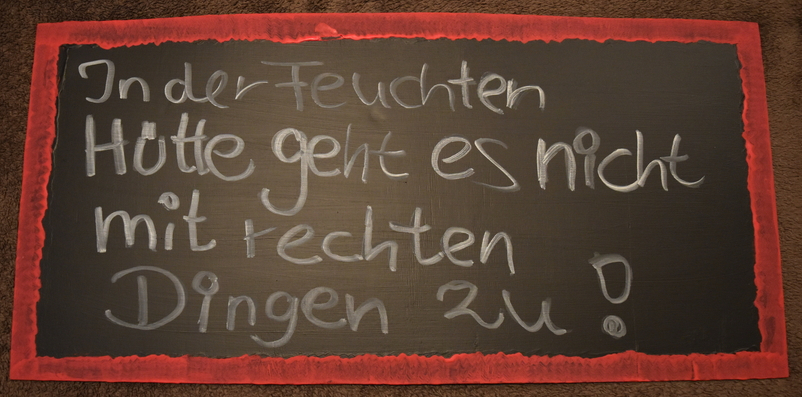 In der Feuchten
Hütte geht es nicht
mit rechten
Dingen zu!